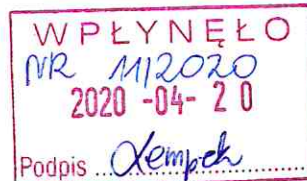 WPŁYNĘŁO
NR 11/2020
2020 -04- 20
Podpis ......................